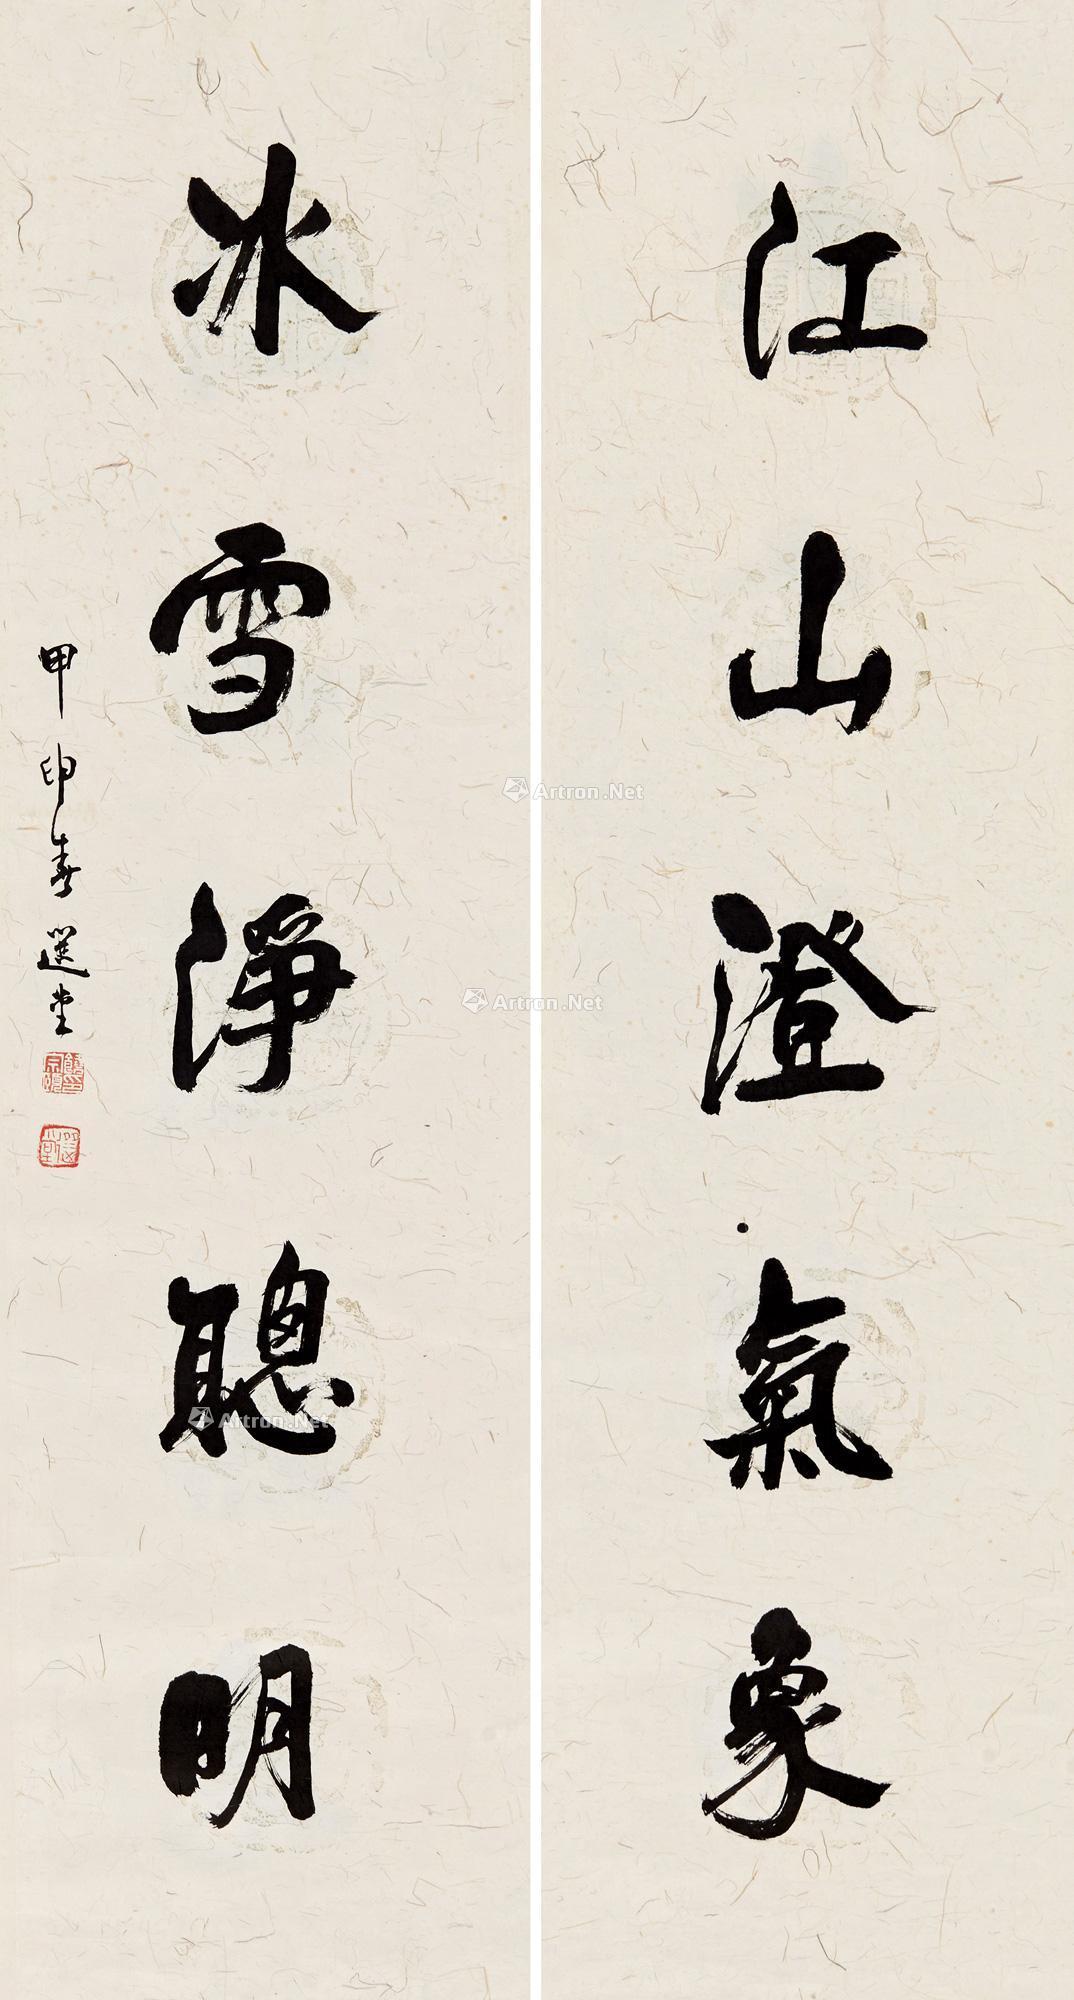 江山澄氣象
冰雪淨聰明
甲申春選堂
饒宗頤印
選堂
Artron.Net
Artron.Net
Artron.Net